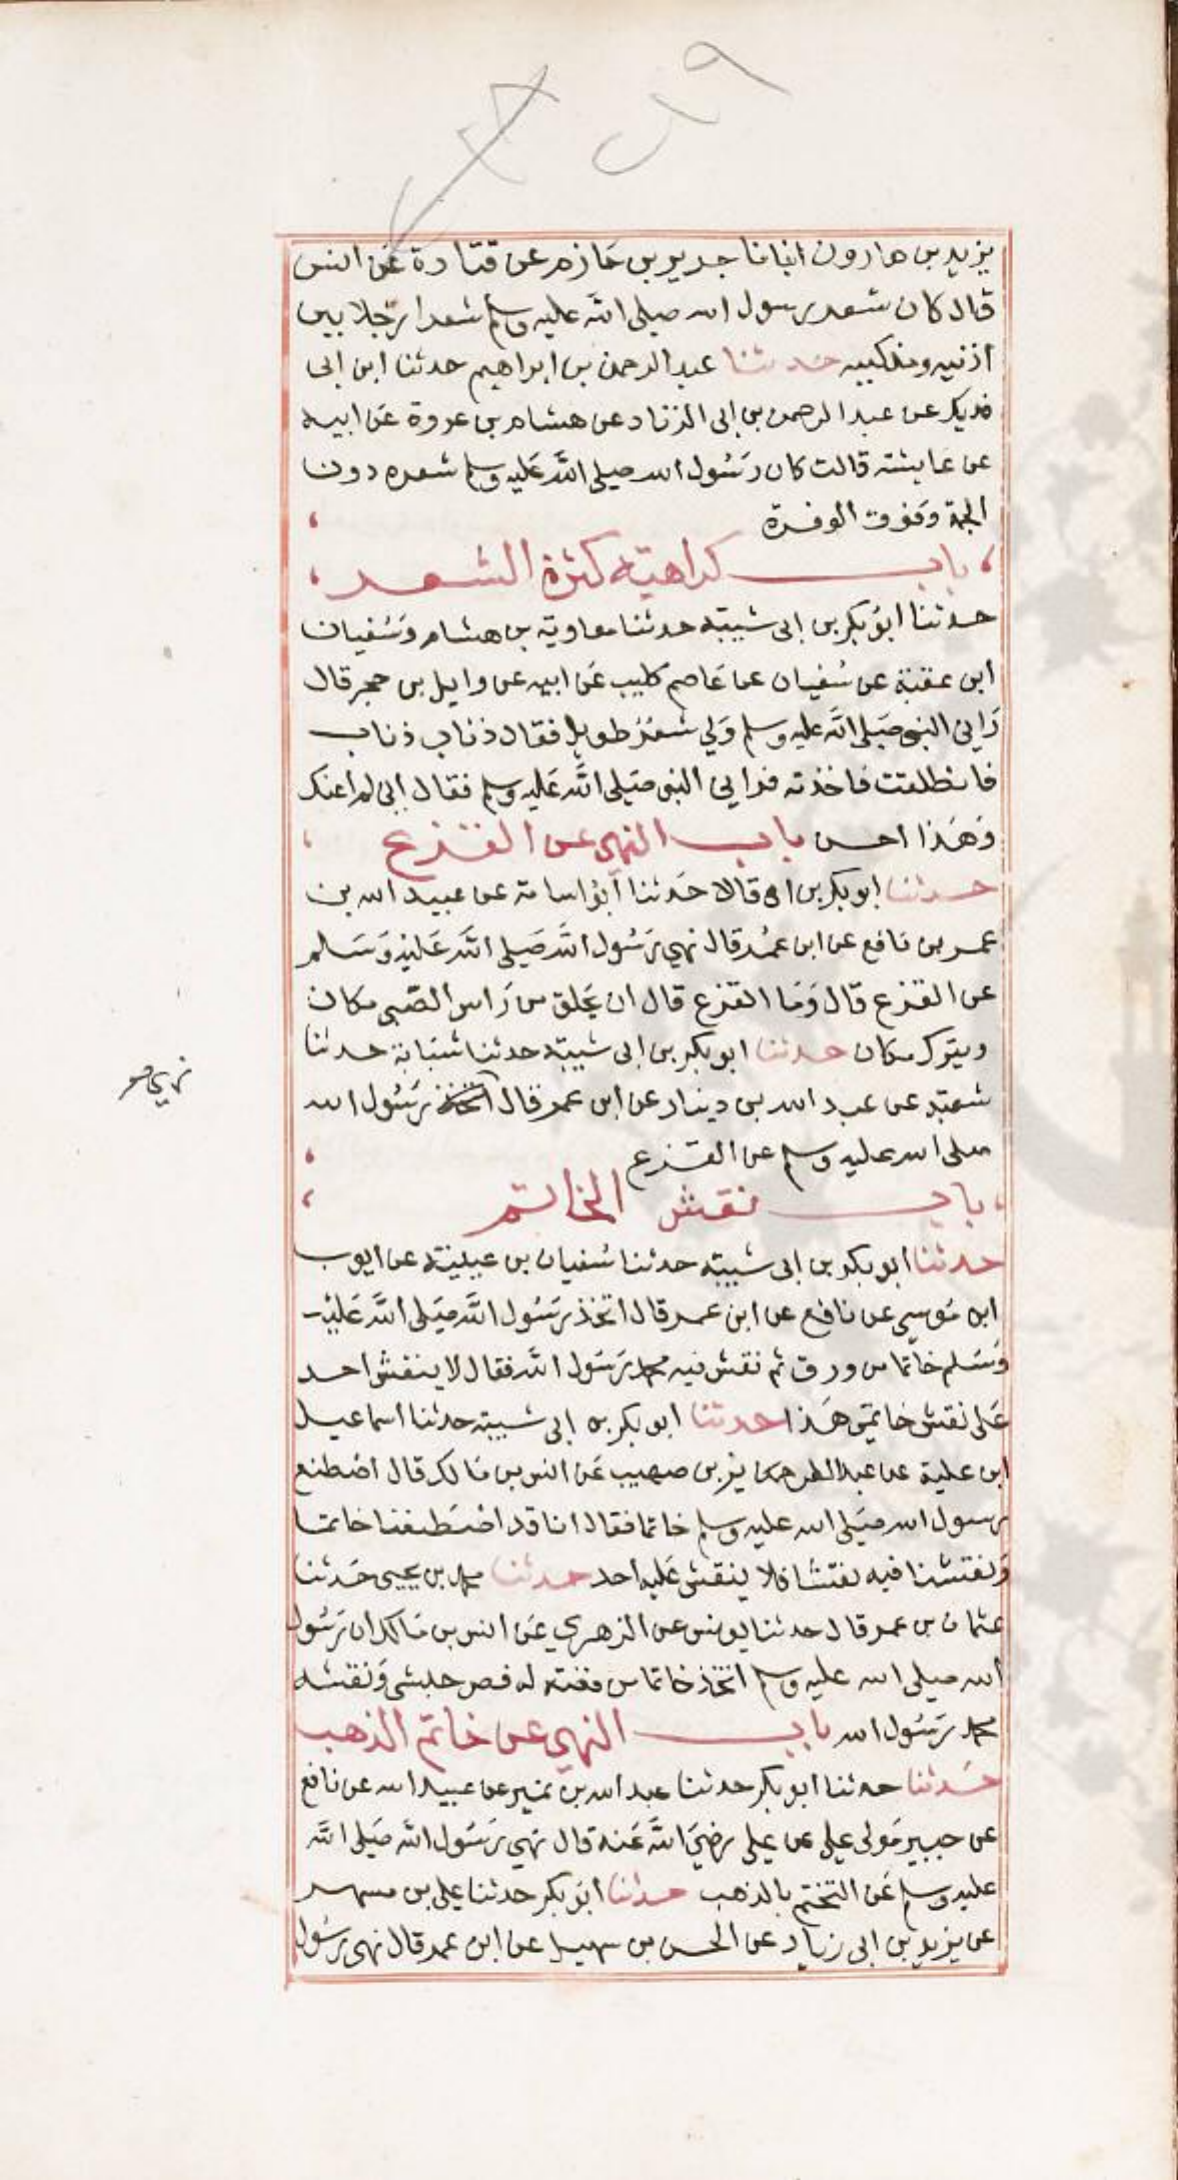 يزيد بن هارون انبانا جرير بن حازم عن قتادة عن انس
قال كان شعر رسول الله صلى الله عليه وسلم شعرا رجلا بين
اذنيه ومنكبيه حدثنا عبد الرحمن بن ابراهيم حدثنا ابن ابى
فديك عن عبد الرحمن بن ابى الزناد عن هشام بن عروة عن ابيه
عن عايشة قالت كان رسول الله صلى الله عليه وسلم شعره دون
الجمة وفوق الوفرة
باب كراهية كثرة الشعر
حدثنا ابو بكر بن ابى شيبة حدثنا معاوية بن هشام وسفيان
ابن عقبة عن سفيان عن عاصم كليب عن ابيه عن وايل بن حجر قال
راني النبي صلى الله عليه وسلم ولي شعر طويل فقال ذناب ذناب
فانطلقت فاخذته فرايي النبي صلى الله عليه وسلم فقال اني لم اعنك
وهذا احسن باب النهي عن القزع
حدثنا ابو بكر بن ابي قالا حدثنا ابو اسامة عن عبيد الله بن
عمر بن نافع عن ابن عمر قال نهي رسول الله صلى الله عليه وسلم
عن القزع قال وما القزع قال ان يحلق من راس الصبي مكان
ويترك مكان حدثنا ابو بكر بن ابى شيبة حدثنا شبابة حدثنا
شعبة عن عبد الله بن دينار عن ابن عمر قال اتخذ رسول الله
نهي صح
صلى الله عليه وسلم عن القزع
باب نقش الخاتم
حدثنا ابو بكر بن ابى شيبة حدثنا سفيان بن عيينة عن ايوب
ابن موسي عن نافع عن ابن عمر قال اتخذ رسول الله صلى الله عليه
وسلم خاتما من ورق ثم نقش فيه محمد رسول الله فقال لا ينقش احد
على نقش خاتمي هذا حدثنا ابو بكر بن ابى شيبة حدثنا اسماعيل
ابن علية عن بن صهيب عن انس بن مالك قال اصطنع
رسول الله صلى الله عليه وسلم خاتما فقال انا قد اصطنعنا خاتما
ونقشنا فيه نقشا فلا ينقش عليه احد حدثنا محمد بن يحيى حدثنا
عثمان بن عمر قال حدثنا يونس عن الزهري عن انس بن مالك ان رسول
الله صلى الله عليه وسلم اتخذ خاتما من فضة له فص حبشي ونقشه
محمد رسول الله باب النهي عن خاتم الذهب
حدثنا حدثنا ابو بكر حدثنا عبد الله بن نمير عن عبيد الله عن نافع
عن جبير مولى علي عن علي رضي الله عنه قال نهي رسول الله صلى الله
عليه وسلم عن التختم بالذهب حدثنا ابو بكر حدثنا علي بن مسهر
عن يزيد بن ابى زياد عن الحسن بن سهيل عن ابن عمر قال نهى رسول